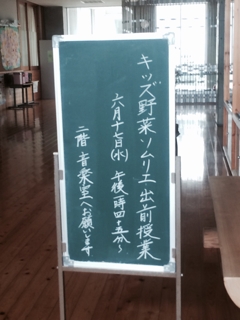 キッズ野菜ソムリエ出前授業
六月十七日(水) 午後一時四十五分〜
二階 音楽室へお願いします